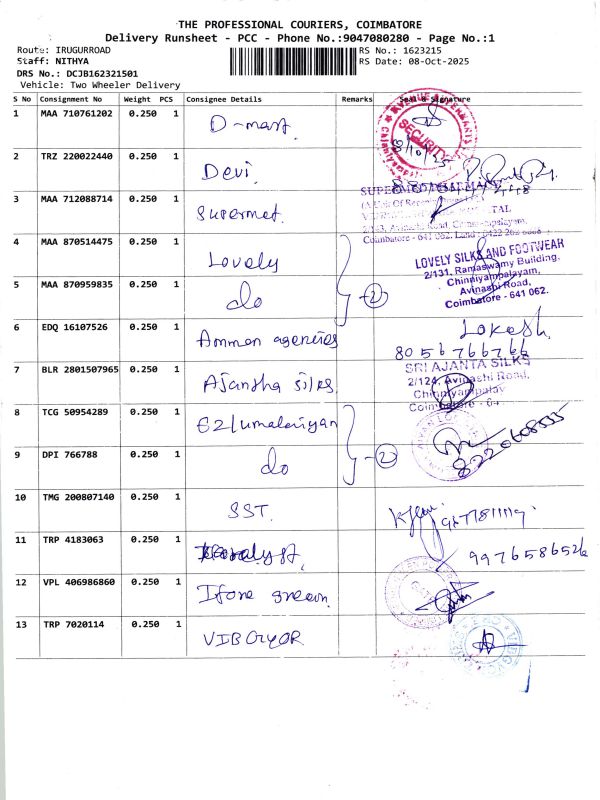 THE PROFESSIONAL COURIERS, COIMBATORE
Delivery Runsheet - PCC - Phone No.:9047080280 - Page No.:1
Route: IRUGURROAD
RS No.: 1623215
Staff: NITHYA
RS Date: 08-Oct-2025
DRS No.: DCJB162321501
Vehicle: Two Wheeler Delivery
S No Consignment No Weight PCS Consignee Details Remarks Seal & Signature
1 MAA 710761202 0.250 1 D-mart.
SECURITY
8/10/25
2 TRZ 220022440 0.250 1 Devi.
3 MAA 712088714 0.250 1 Supermet.
2/113, Avinashi Road, Chinniyampalayam,
Coimbatore - 641 062.
4 MAA 870514475 0.250 1 Lovely
LOVELY SILKS AND FOOTWEAR
2/131, Ramaswamy Building,
Chinniyampalayam,
Avinashi Road,
Coimbatore - 641 062.
5 MAA 870959835 0.250 1 do 2
6 EDQ 16107526 0.250 1 Amman agencies
Lokesh
8056766766
7 BLR 2801507965 0.250 1 Ajantha silks
SRI AJANTA SILKS
2/124, Avinashi Road,
Chinniyampalay
Coimbatore - 64
8 TCG 50954289 0.250 1
8220608555
9 DPI 766788 0.250 1 do 2
10 TMG 200807140 0.250 1 SST.
11 TRP 4183063 0.250 1
9976586526
12 VPL 406986860 0.250 1
13 TRP 7020114 0.250 1 VIBGYOR